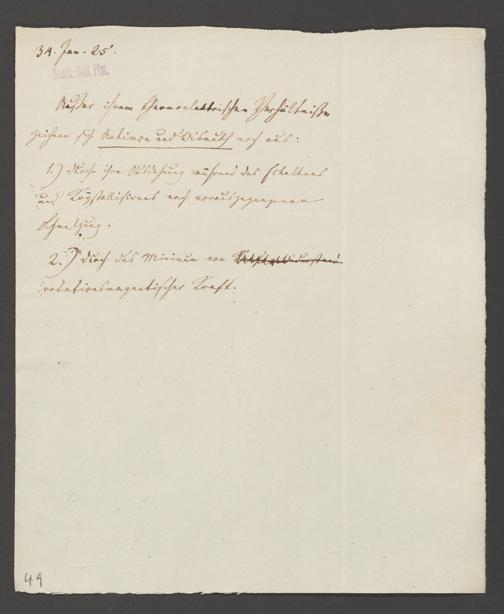 34. Jan. 25.
Senck. Bibl. Ffm.
Außer ihrem thermoelektrischen Verhältnisse
zeichnen sich Antimon und Wismuth noch aus:
1.) durch ihre Ausdehnung während des Erkaltens
und Krystallisirens nach vorausgegangener
Schmelzung.
2.) durch das Minimum von
rotationsmagnetischer Kraft.
49